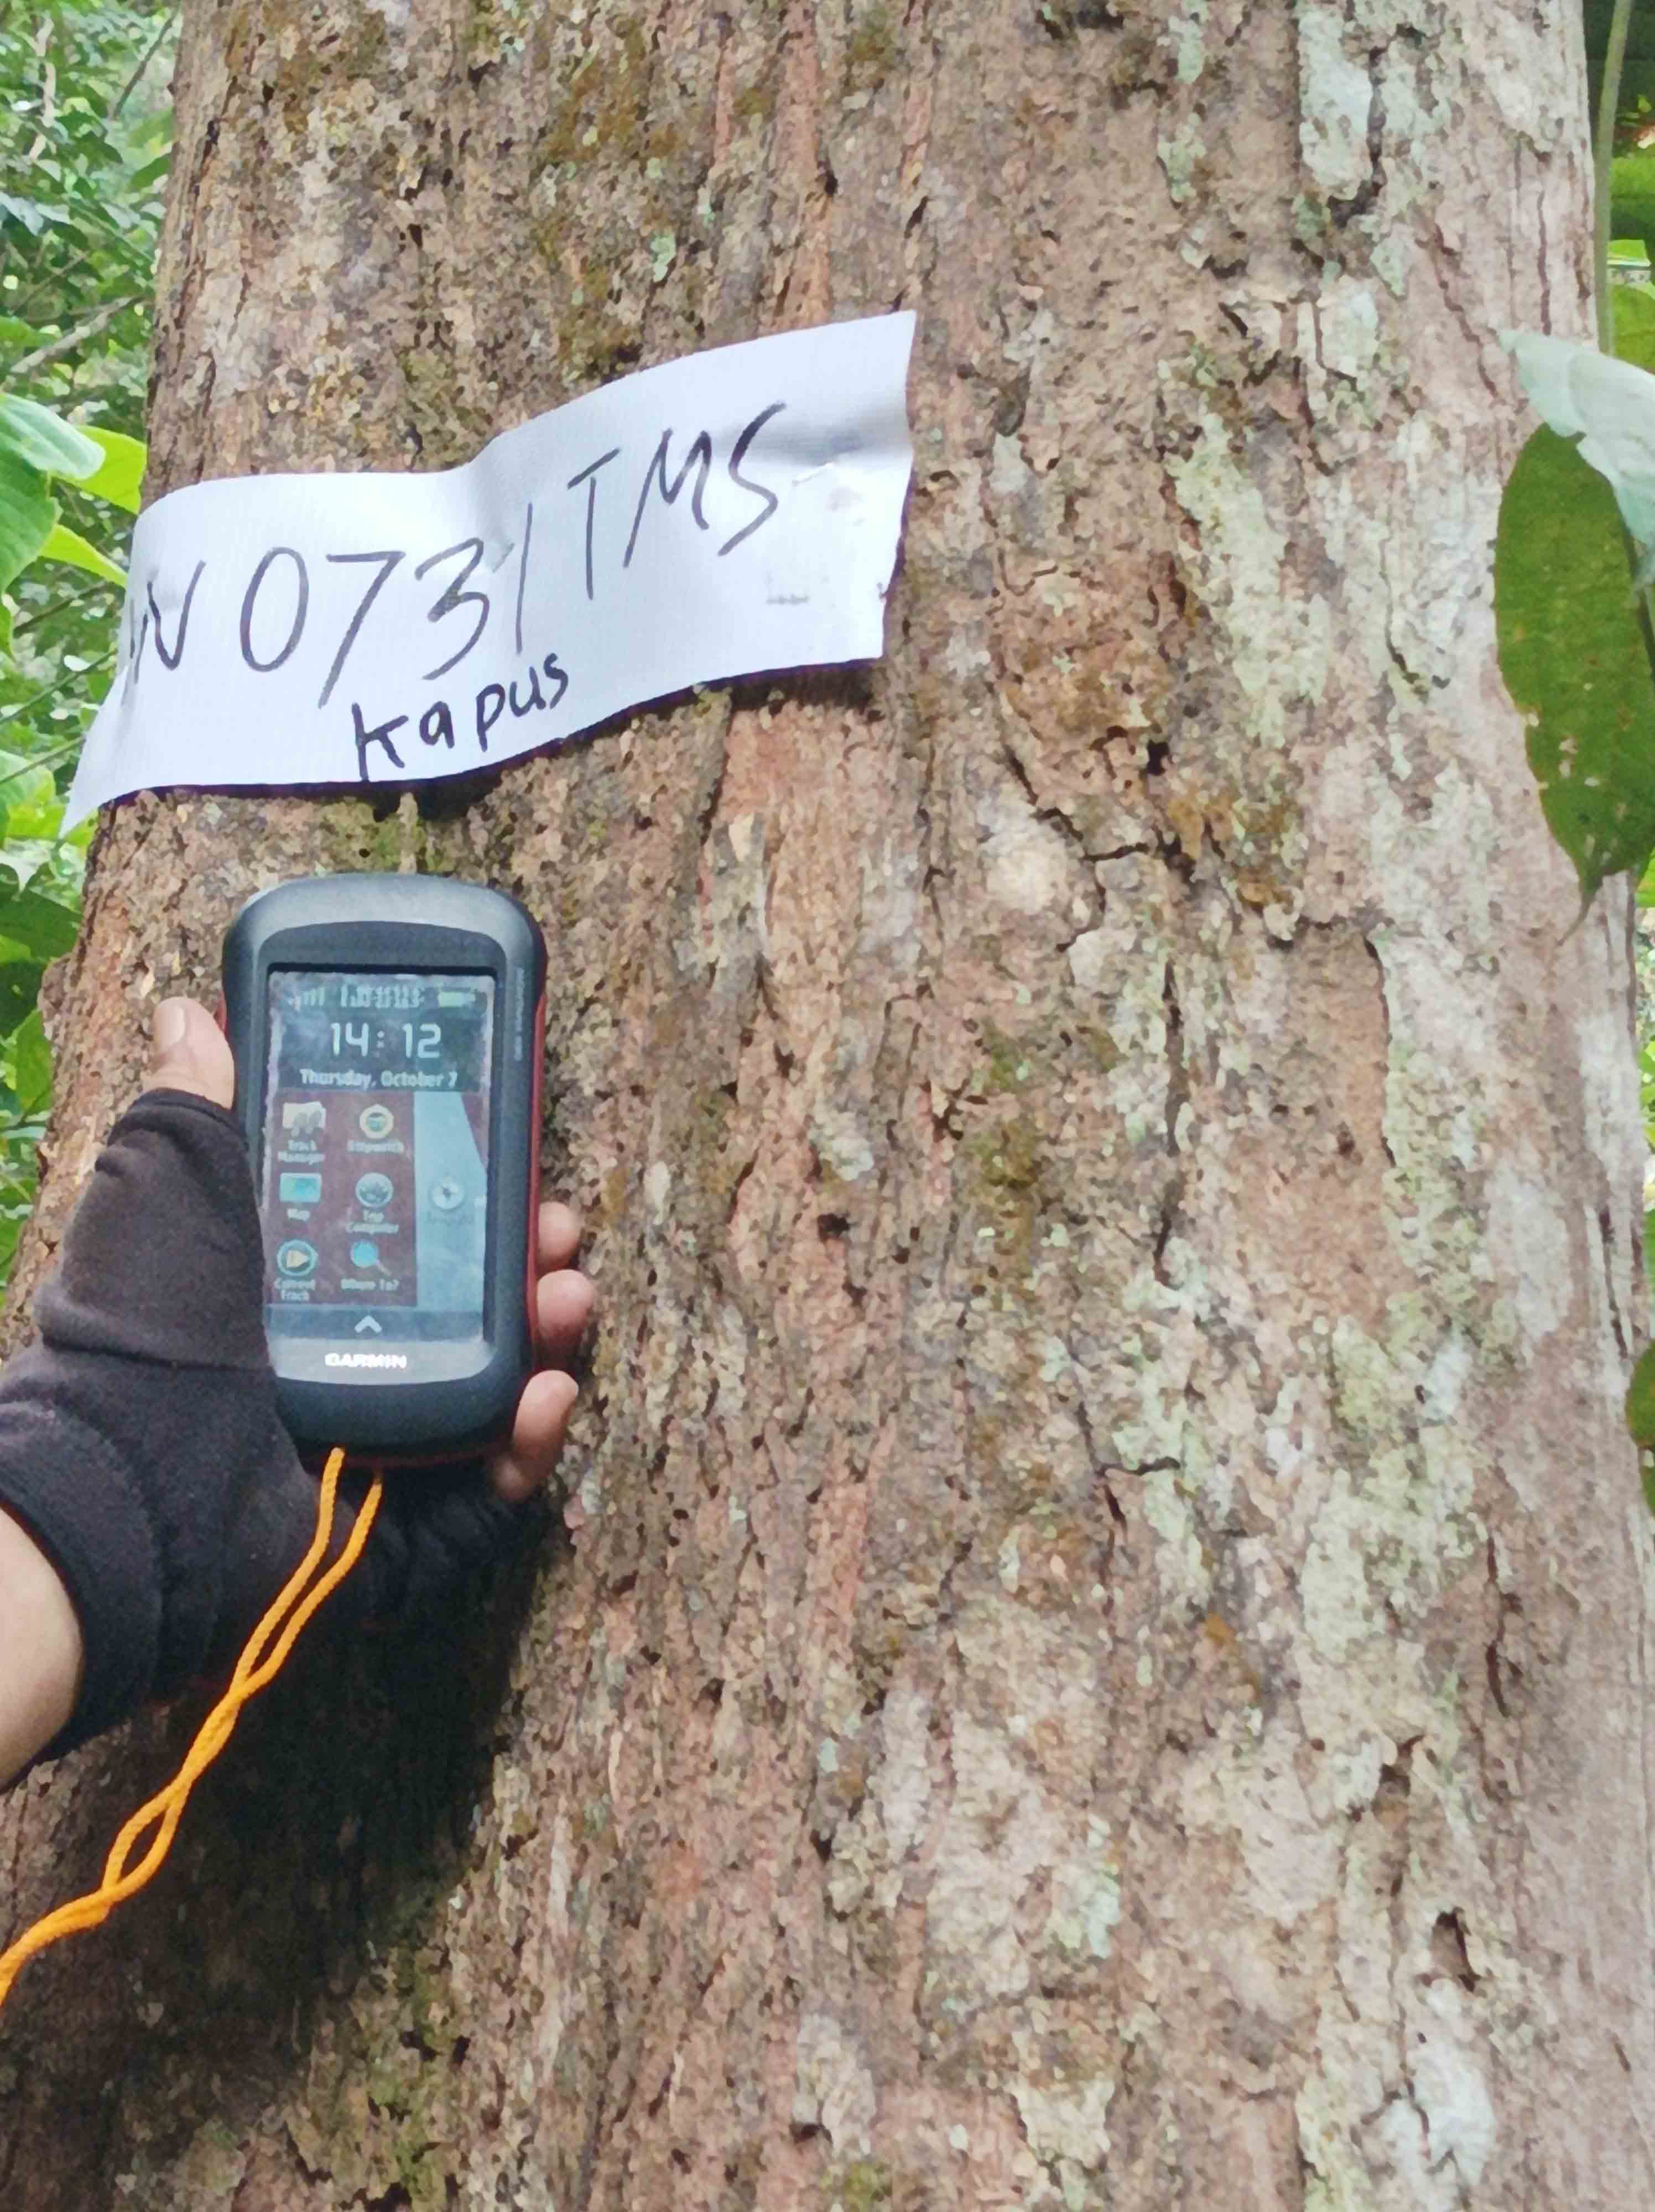 N 073/TMS
Kapus
14:12
Thursday, October 7
Track Manager
Stopwatch
Map
Trip Computer
Current Track
Where To?
GARMIN